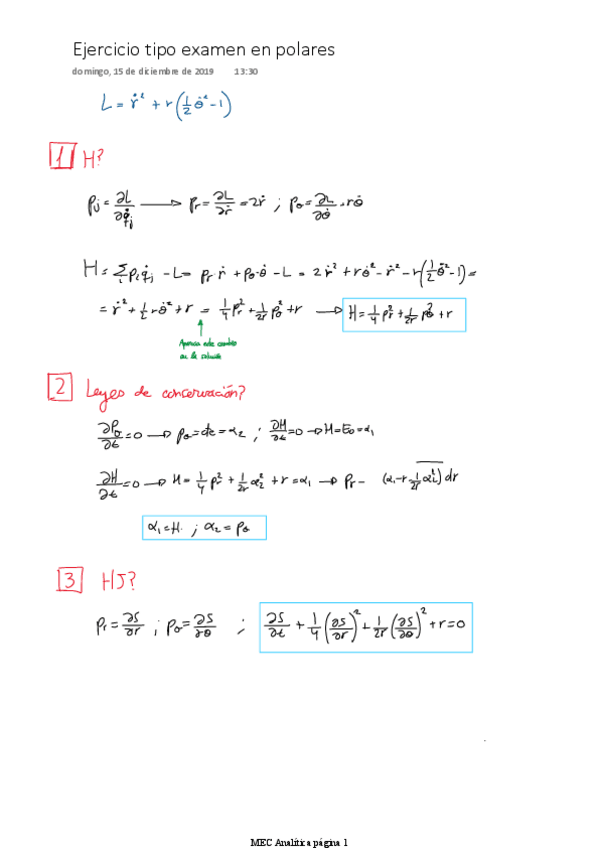 Ejercicio tipo examen en polares
domingo, 15 de diciembre de 2019 13:30
L = ṙ² + r(½ θ̇² -1)
1 H?
pⱼ = ∂L/∂q̇ⱼ → pᵣ = ∂L/∂ṙ = 2ṙ ; p_θ = ∂L/∂θ̇ = rθ̇
H = Σ pᵢ q̇ⱼ - L = pᵣ ṙ + p_θ·θ̇ - L = 2ṙ² + rθ̇² - ṙ² - r(½ θ̇² -1) =
= ṙ² + ½ rθ̇² + r = ¼ pᵣ² + 1/2r p_θ² + r → H = ¼ pᵣ² + 1/2r p_θ² + r
2 Leyes de conservación?
∂p_θ/∂t = 0 → p_θ = cte = α₂ ; ∂H/∂t = 0 → H = E₀ = α₁
∂H/∂t = 0 → H = ¼ pᵣ² + 1/2r α₂² + r = α₁ → pᵣ - (α₁ - r 1/2r α₂²) dr
α₁ = H. ; α₂ = p_θ
3 HJ?
pᵣ = ∂S/∂r ; p_θ = ∂S/∂θ ; ∂S/∂t + ¼ (∂S/∂r)² + 1/2r (∂S/∂θ)² + r = 0
MEC Analítica página 1